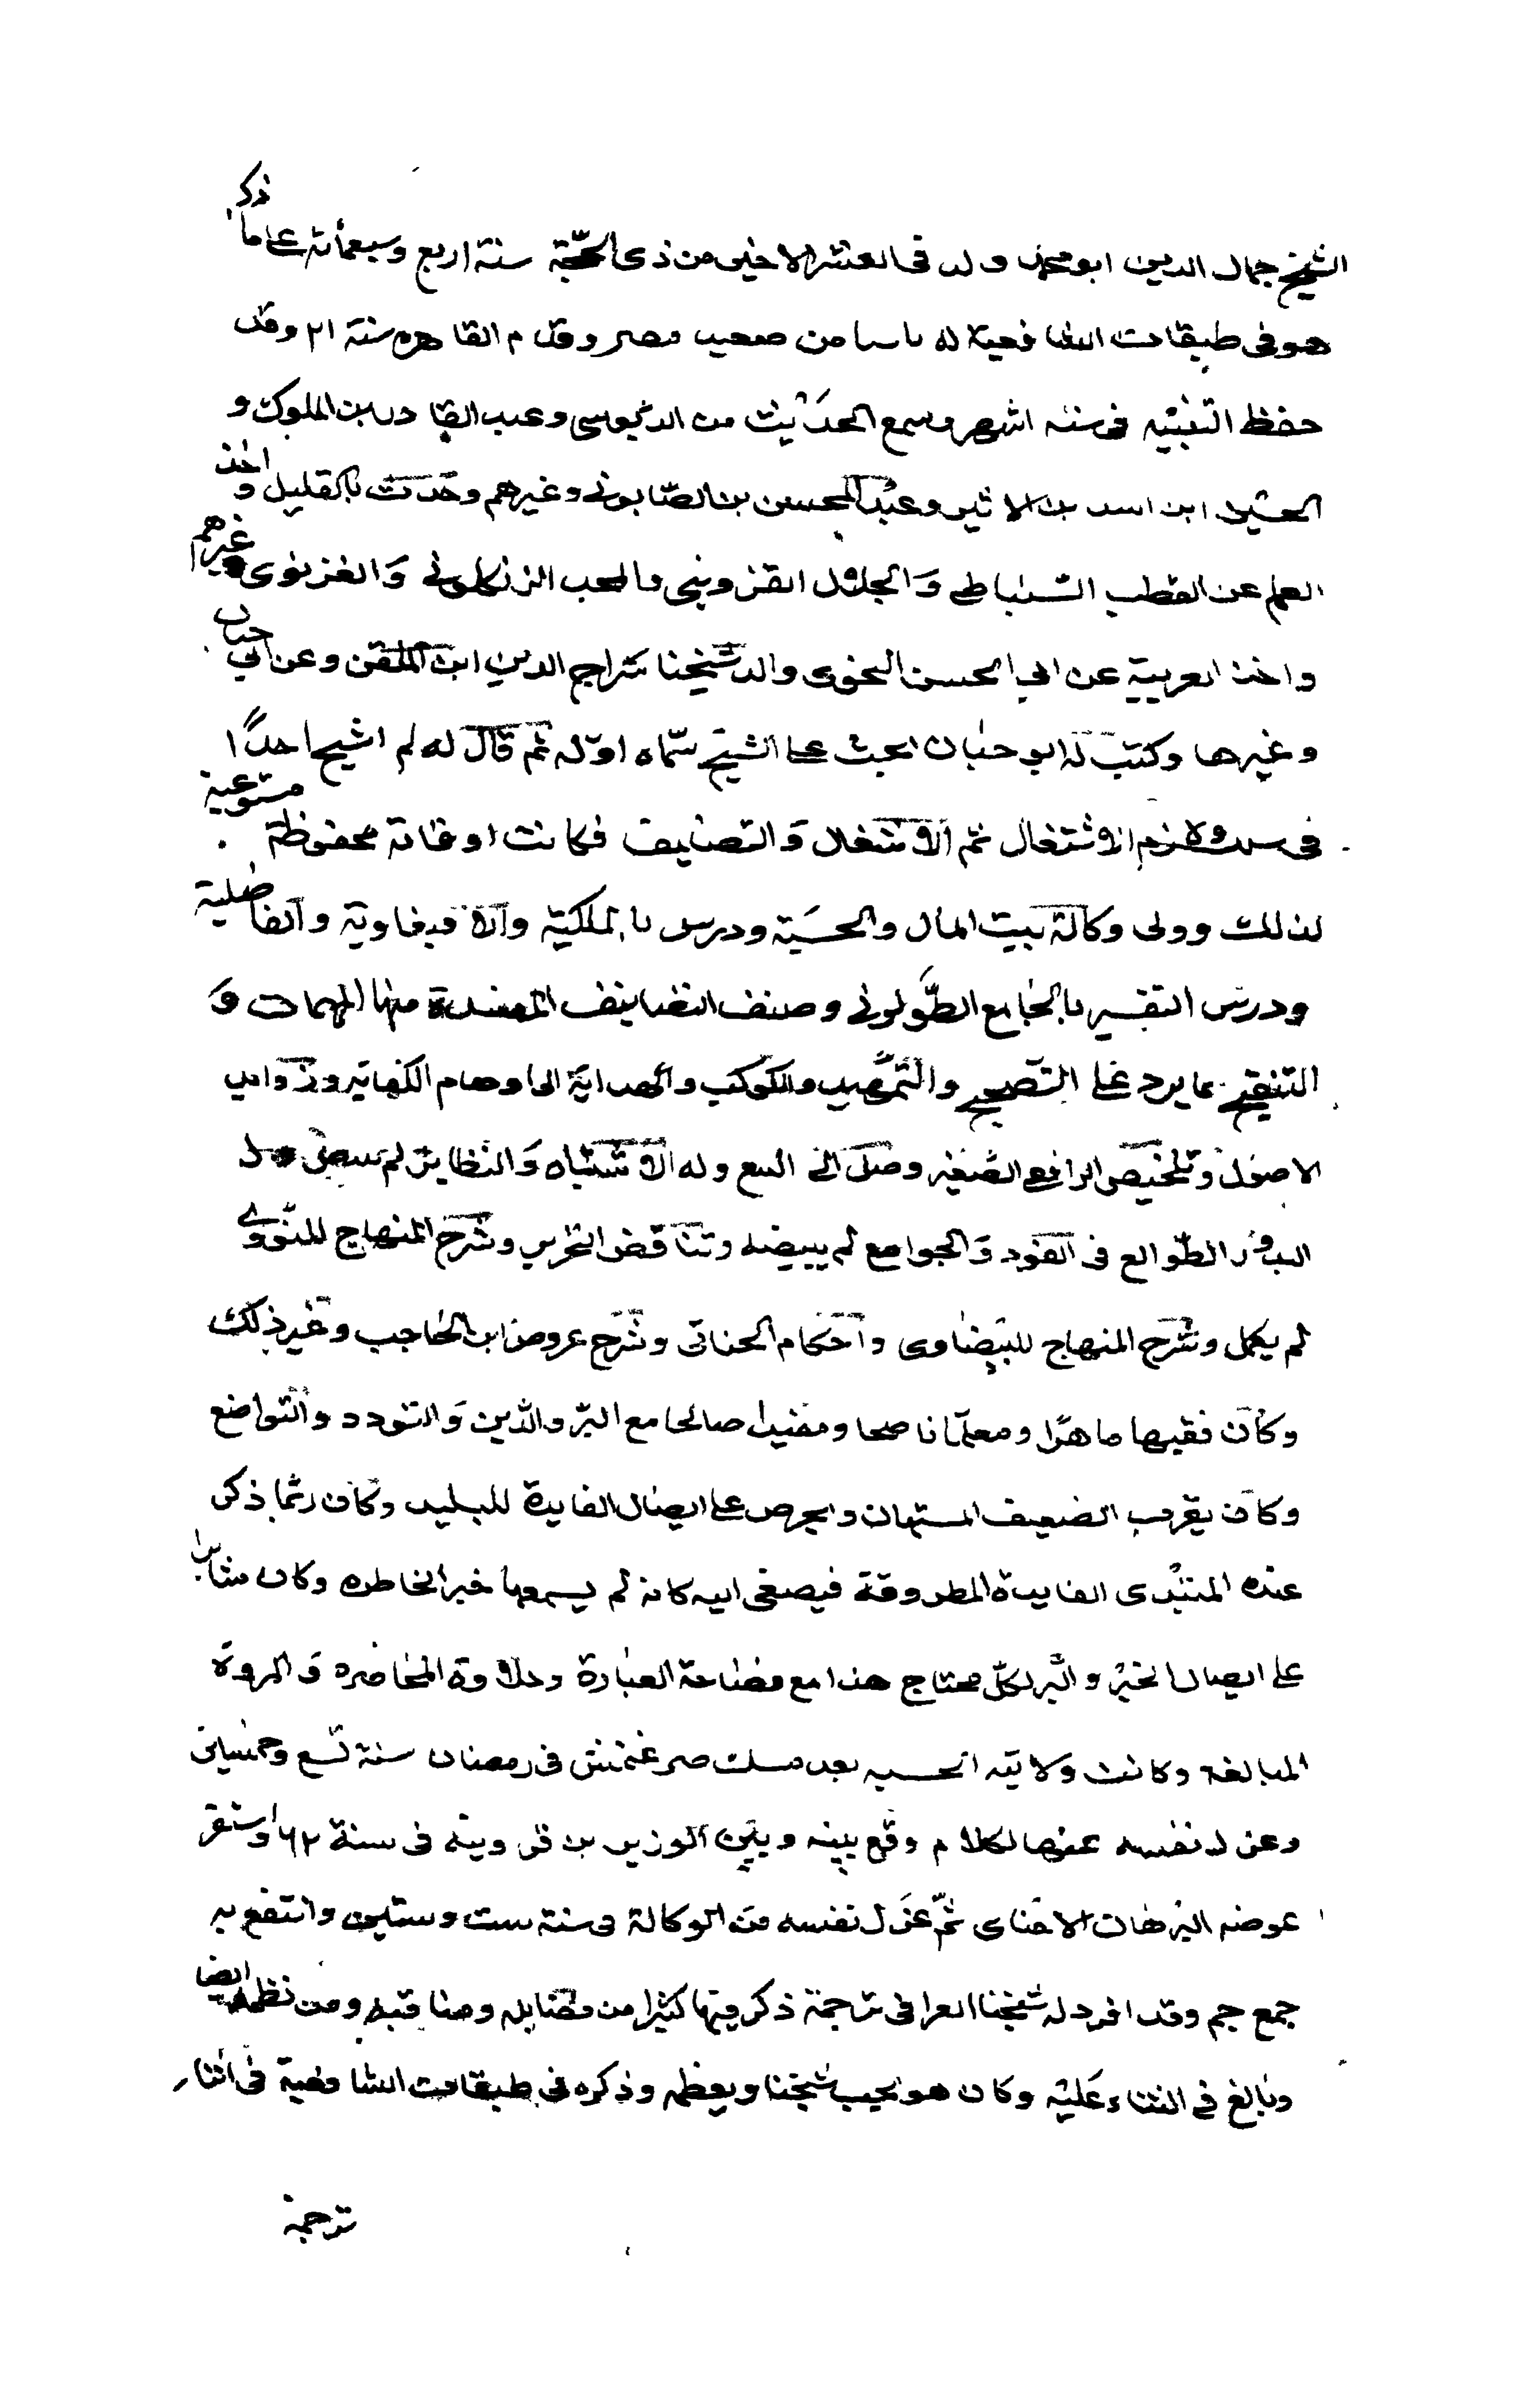 الشيخ جمال الدين ابو محمد ولد فى العشر الاخير من ذى الحجّة سنة اربع وسبعمائة على ما ذكر
هو فى طبقات الشافعية له باسنا من صعيد مصر وقدم القاهره سنة ٢١ وقد
حفظ التنبيه فى سته اشهر وسمع الحديث من الدبوسى وعبد القادر بن الملوك و
الحسن ابن اسد بن الاثير وعبد المحسن بن الصّابونى وغيرهم وحدث بالقليل واخذ
العلم عن القطب السّنباطى والجلال القزوينى والمجد الزنكلونى والغزنوى وغيرهم
واخذ العربية عن ابى الحسن النحوى والد شيخنا سراج الدين ابن الملقن وعن ابى حيان
وغيرها وكتب له ابو حيان بحث على الشيخ سمّاه اوّله ثم قال له لم اشيخ احدًا
فى سنك ولازم الاشتغال ثم الاشغال والتصانيف فكانت اوقاته محفوظة مستوعبة
لذلك وولى وكالة بيت المال والحسبة ودرس بالملكية والاقبغاوية والفاضلية
ودرس التفسير بالجامع الطّولونى وصنف التصانيف المفيدة منها المهمات و
التنقيح بما يرد على التصحيح والتّمهيد والكوكب والهداية الى اوهام الكفاية وزوايد
الاصول وتلخيص الرافعى الصّغير وصل الى البيع وله الاشباه والنظاير لم يبيض و
البدور الطّوالع فى الفرود والجوامع لم يبيضه وتناقض البحرين وشرح المنهاج للنووى
لم يكمل وشرح المنهاج للبيضاوى واحكام الخناثى وشرح عروض ابن الحاجب وغير ذلك
وكان فقيها ماهرًا ومعلّما ناصحا ومفيدا صالحا مع البرّ والدّين والتودد والتواضع
وكان يقرب الضعيف المستهان ويحرص على ايصال الفايدة للبليد وكان ربّما ذكر
عنده المبتدى الفايدة المطروقة فيصغى اليه كانه لم يسمعها جبرا لخاطره وكان مثابرا
على ايصال الخير والبر لكلّ محتاج هذا مع فصاحة العبارة وحلاوة المحاضره والمروة
المبالغة وكانت ولايته الحسبه بعد مسك صرغتمش فى رمضان سنة تسع وخمسين
وعزل نفسه عنها لكلام وقع بينه وبين الوزير بن قروينة فى سنة ٦٢ واستقر
عوضه البرهان الاخناى ثمّ عزل نفسه من الوكالة فى سنة ست وستين وانتفع به
جمع جم وقد افرد له شيخنا العراقى ترجمة ذكر فيها كثيرا من فضايله ومناقبه ومن نظمه ايضا
وبالغ فى الثناء عليه وكان هو يحب شيخنا ويعظمه وذكره فى طبقات الشافعية فى اثناء
ترجمة